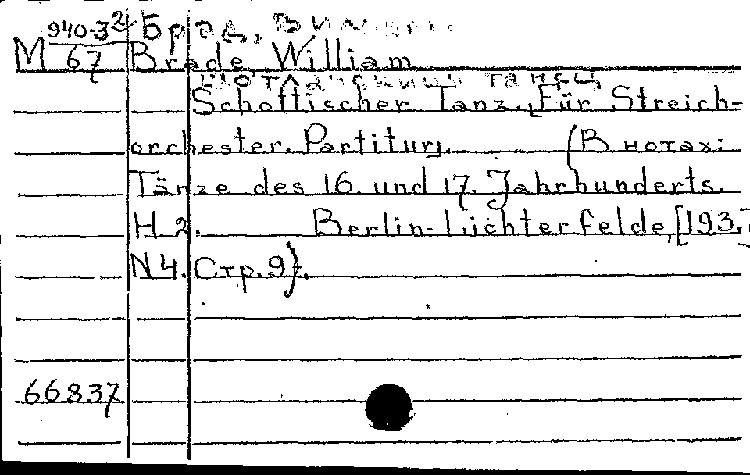 940-3² Брад, Вильям
М 67 Brade, William
Шотландский танец
Schottischer Tanz. [Für Streich-
orchester. Partitur]. (В нотах:
Tänze des 16. und 17. Jahrhunderts.
H. 2. Berlin-Lichterfelde, [193.]
N 4. Стр. 9).
66837